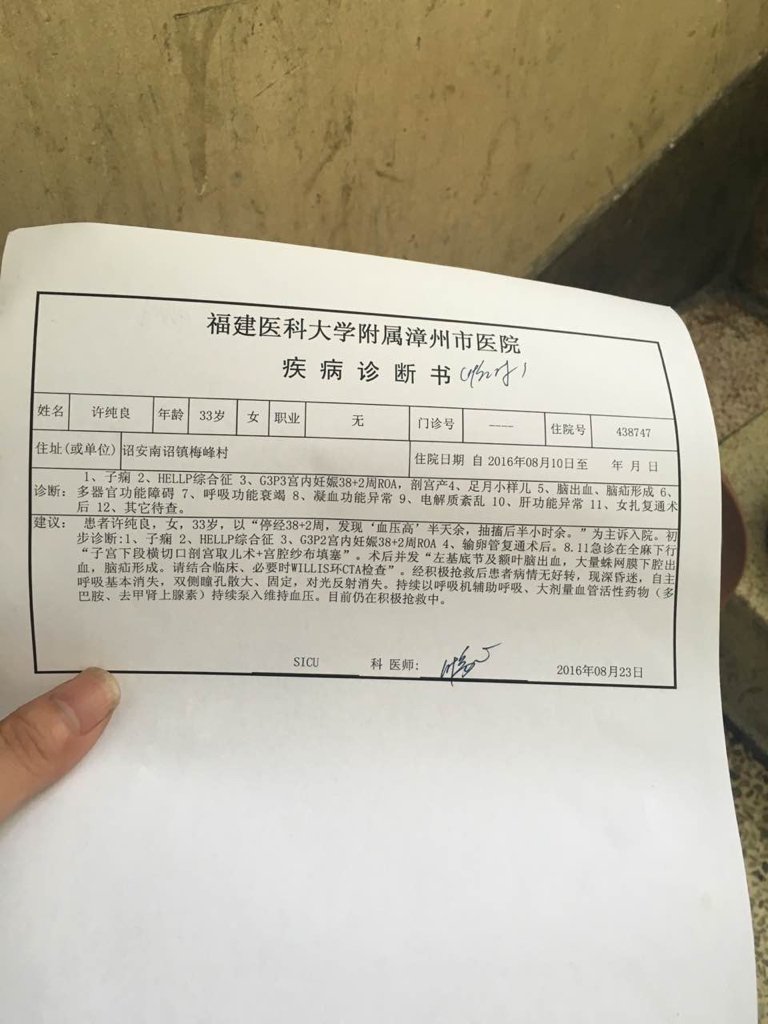 福建医科大学附属漳州市医院
疾病诊断书
姓名 许纯良 年龄 33岁 女 职业 无 门诊号 ---- 住院号 438747
住址(或单位) 诏安南诏镇梅峰村 住院日期 自 2016年08月10日至 年 月 日
1、子痫 2、HELLP综合征 3、G3P3宫内妊娠38+2周ROA，剖宫产4、足月小样儿 5、脑出血、脑疝形成 6、
诊断: 多器官功能障碍 7、呼吸功能衰竭 8、凝血功能异常 9、电解质紊乱 10、肝功能异常 11、女扎复通术
后 12、其它待查。
建议: 患者许纯良，女，33岁，以“停经38+2周，发现‘血压高’半天余，抽搐后半小时余。”为主诉入院。初
步诊断:1、子痫 2、HELLP综合征 3、G3P2宫内妊娠38+2周ROA 4、输卵管复通术后。8.11急诊在全麻下行
“子宫下段横切口剖宫取儿术+宫腔纱布填塞”。术后并发“左基底节及额叶脑出血，大量蛛网膜下腔出
血，脑疝形成。请结合临床、必要时WILLIS环CTA检查”。经积极抢救后患者病情无好转，现深昏迷，自主
呼吸基本消失，双侧瞳孔散大、固定，对光反射消失。持续以呼吸机辅助呼吸、大剂量血管活性药物（多
巴胺、去甲肾上腺素）持续泵入维持血压。目前仍在积极抢救中。
SICU 科 医师: 2016年08月23日